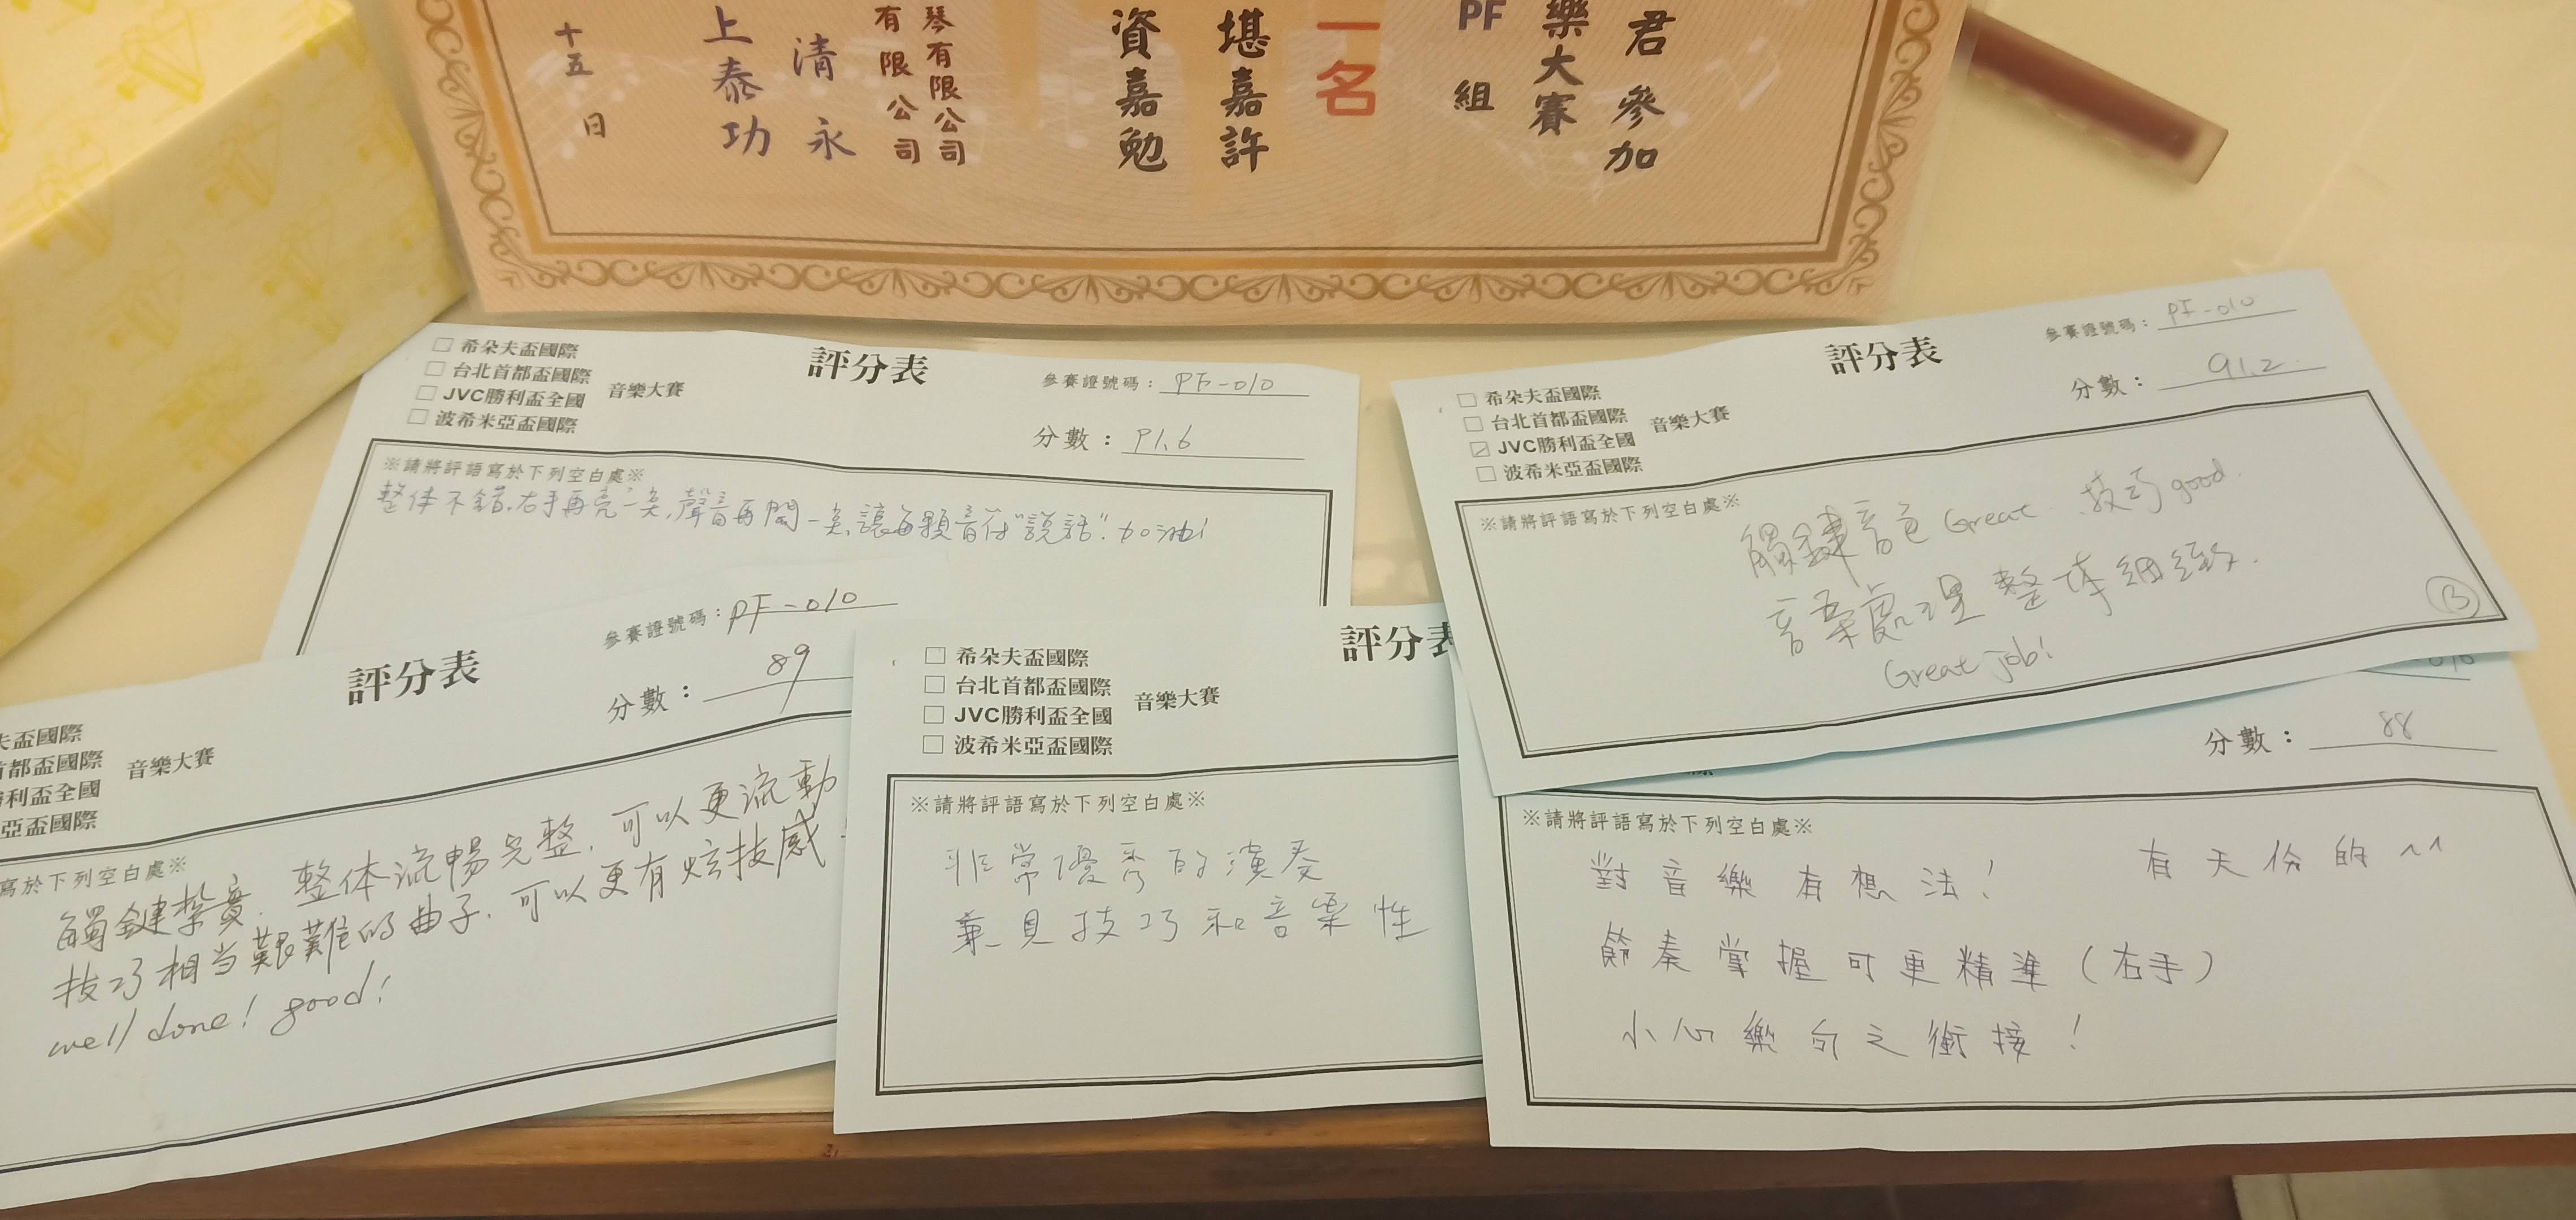 君參加
樂大賽
PF組
一名
堪嘉許
資嘉勉
琴有限公司
有限公司
清永
上泰功
十五日
□ 希朵夫盃國際
□ 台北首都盃國際
□ JVC勝利盃全國
□ 波希米亞盃國際
音樂大賽
評分表
參賽證號碼：PF-010
分數：91.6
※請將評語寫於下列空白處※
整体不錯,右手再亮一点,聲音再開一点,讓每顆音符"說話".加油!
□ 希朵夫盃國際
□ 台北首都盃國際
☑ JVC勝利盃全國
□ 波希米亞盃國際
音樂大賽
評分表
參賽證號碼：PF-010
分數：91.2
※請將評語寫於下列空白處※
觸鍵音色Great.技巧good.
音樂處理整体細緻.
Great job!
夫盃國際
首都盃國際
勝利盃全國
亞盃國際
音樂大賽
評分表
參賽證號碼：PF-010
分數：89
寫於下列空白處※
觸鍵紮實.整体流暢完整.可以更流動
技巧相当艱難的曲子.可以更有炫技感.
well done! good!
□ 希朵夫盃國際
□ 台北首都盃國際
□ JVC勝利盃全國
□ 波希米亞盃國際
音樂大賽
評分表
※請將評語寫於下列空白處※
非常優秀的演奏
兼具技巧和音樂性
分數：88
※請將評語寫於下列空白處※
對音樂有想法! 有天份的^^
節奏掌握可更精準(右手)
小心樂句之銜接!